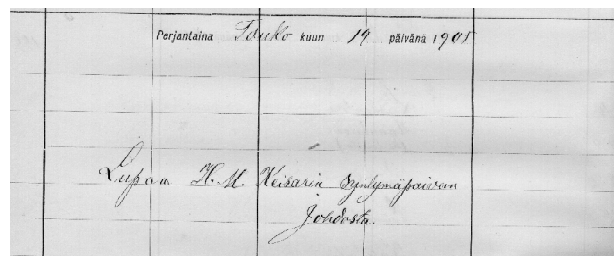 Perjantaina Touko kuun 19 päivänä 1905
Lupaa H. M. Keisarin Syntymäpäivän
Johdosta.